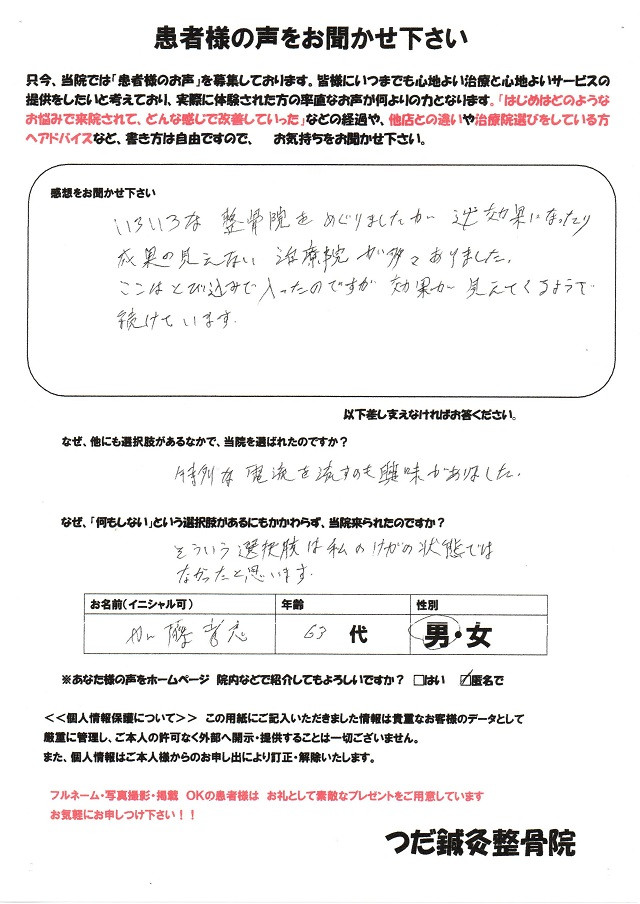 患者様の声をお聞かせ下さい
只今、当院では「患者様のお声」を募集しております。皆様にいつまでも心地よい治療と心地よいサービスの
提供をしたいと考えており、実際に体験された方の率直なお声が何よりの力となります。「はじめはどのような
お悩みで来院されて、どんな感じで改善していった」などの経過や、他店との違いや治療院選びをしている方
へアドバイスなど、書き方は自由ですので、 お気持ちをお聞かせ下さい。
感想をお聞かせ下さい
いろいろな 整骨院を めぐりましたが 逆効果になったり
成果の見えない 治療院が多々ありました。
ここはとび込みで入ったのですが 効果が見えてくるようで
続けています。
以下差し支えなければお答ください。
なぜ、他にも選択肢があるなかで、当院を選ばれたのですか？
特別な電流を流すのも興味がありました。
なぜ、「何もしない」という選択肢があるにもかかわらず、当院来られたのですか？
そういう選択肢は私のけがの状態では
なかったと思います。
お名前（イニシャル可） 年齢 性別
藤 63 代 男・女
※あなた様の声をホームページ 院内などで紹介してもよろしいですか？ □はい ☑匿名で
＜＜個人情報保護について＞＞ この用紙にご記入いただきました情報は貴重なお客様のデータとして
厳重に管理し、ご本人の許可なく外部へ開示・提供することは一切ございません。
また、個人情報はご本人様からのお申し出により訂正・解除いたします。
フルネーム・写真撮影・掲載 OKの患者様は お礼として素敵なプレゼントをご用意しています
お気軽にお申しつけ下さい！！
つだ鍼灸整骨院